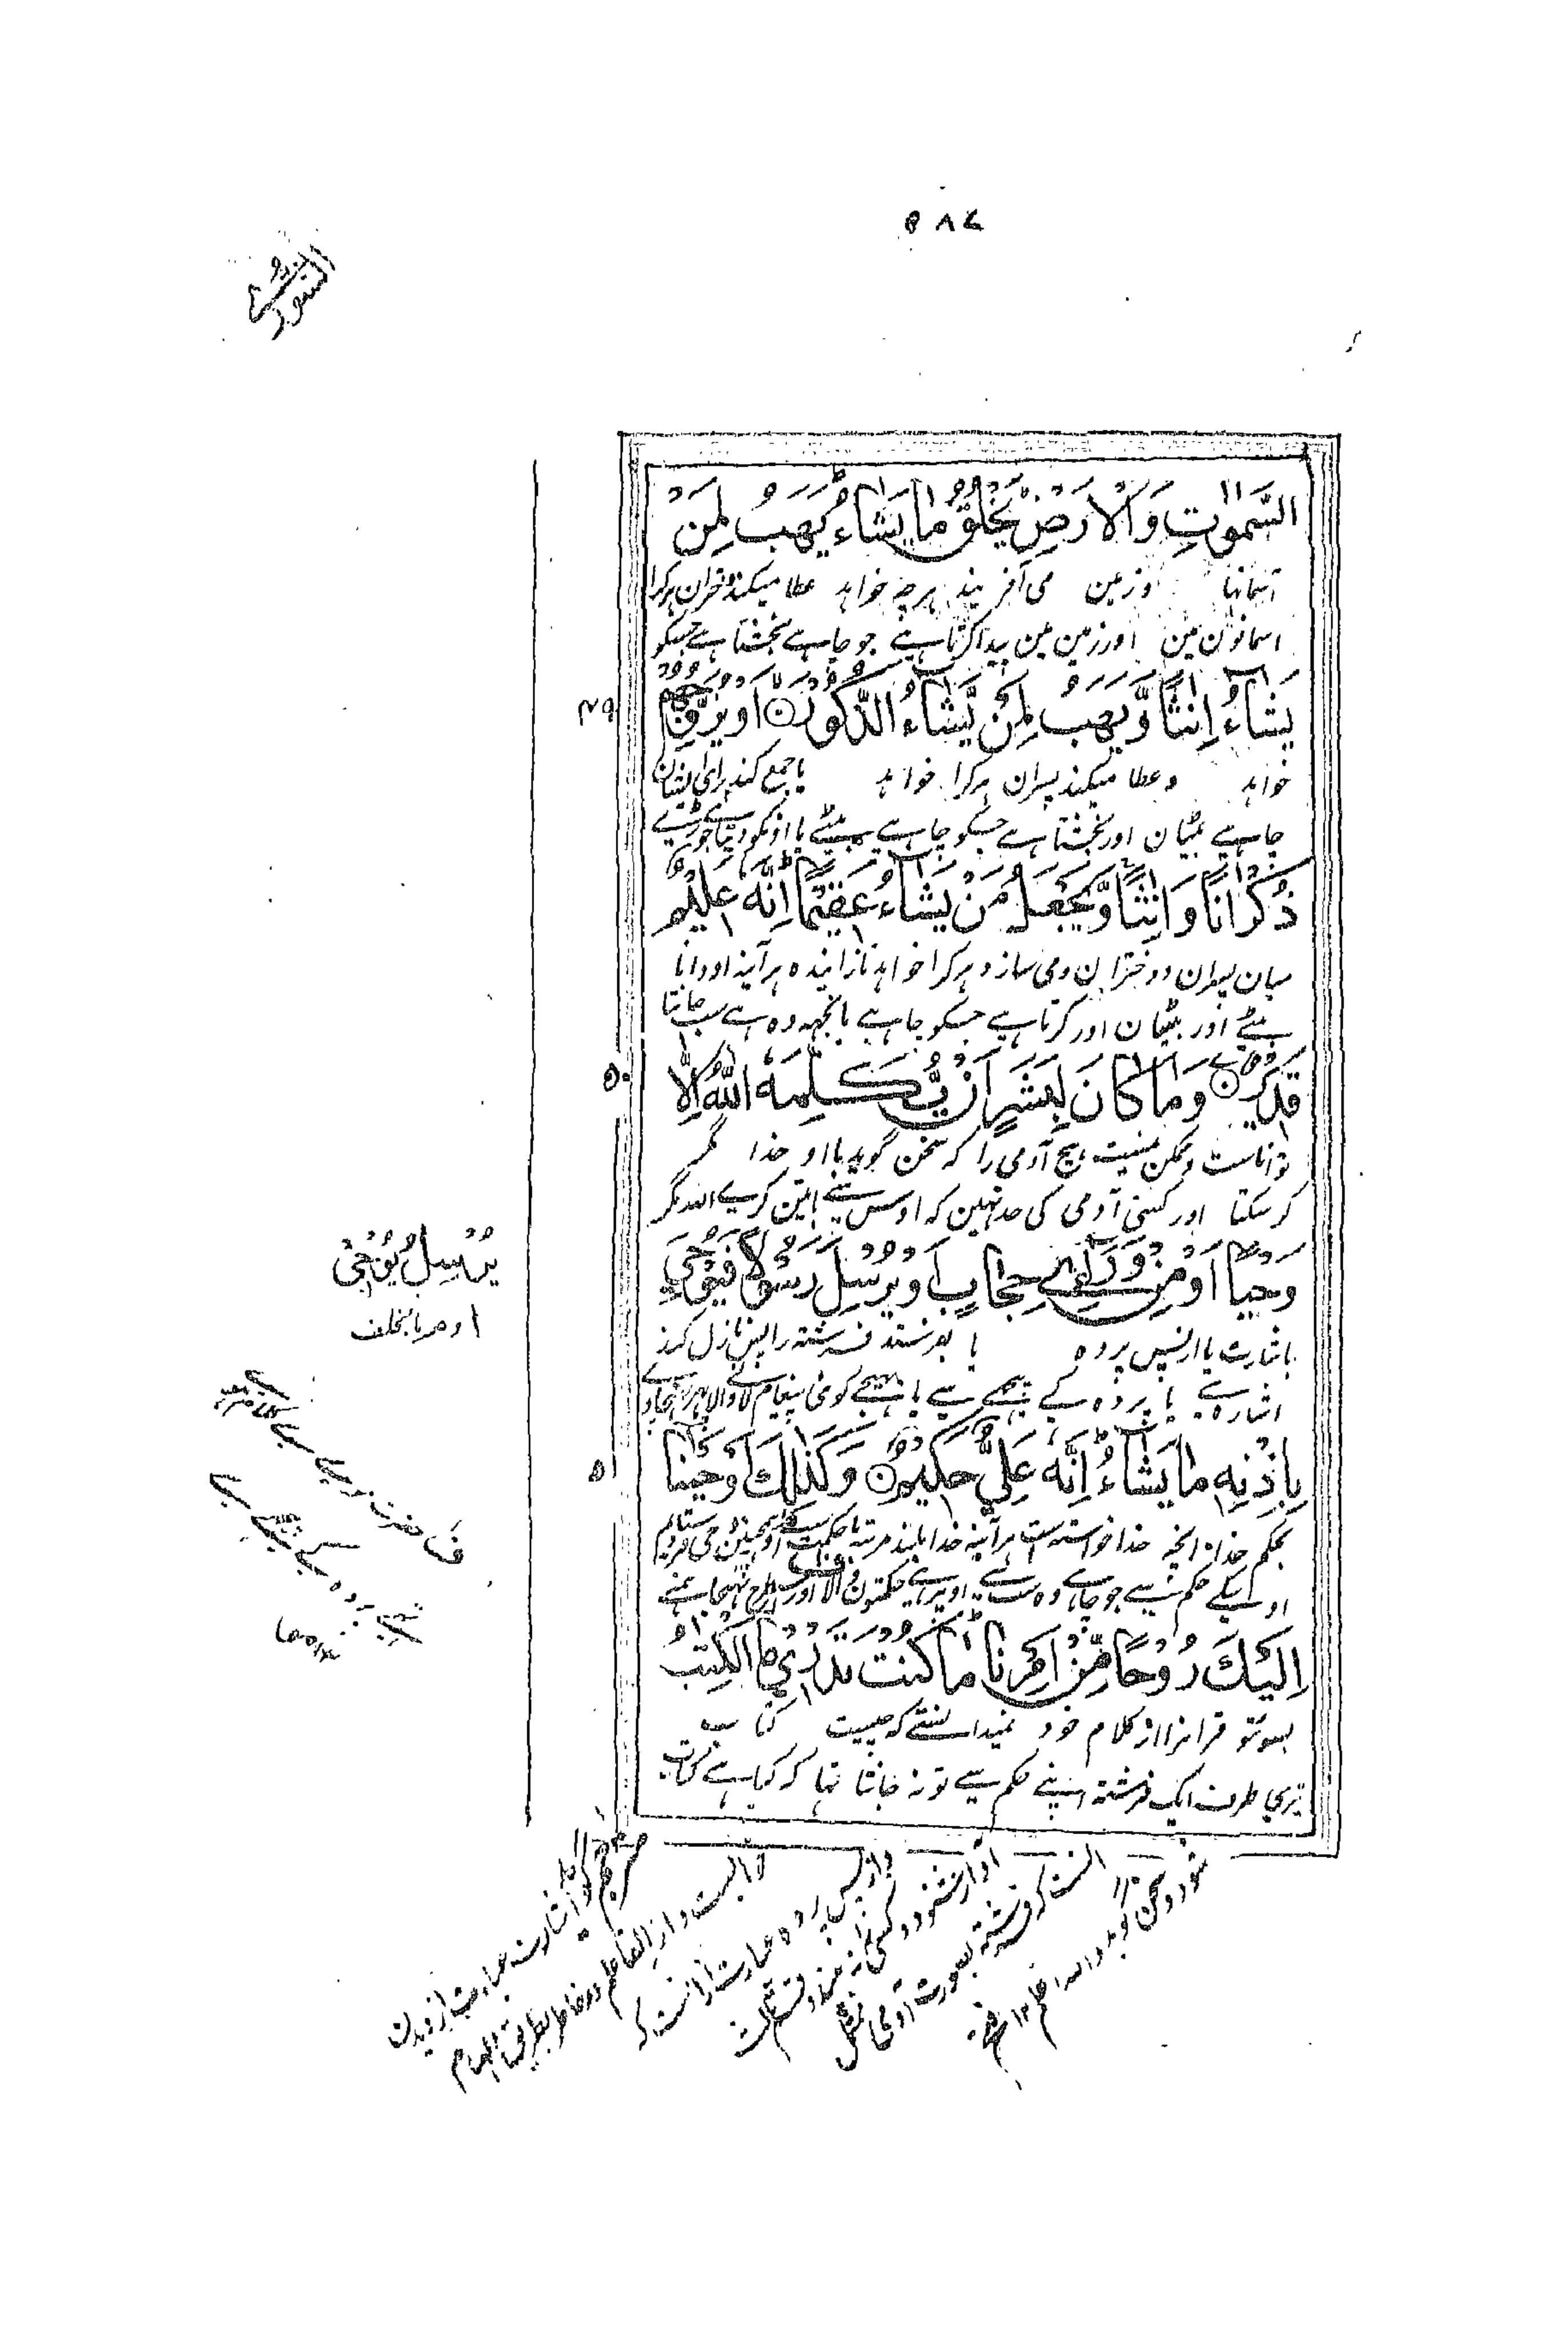 ۵۸۷
الشورٰی
السَّمٰوٰتِ وَالْاَرْضِ يَخْلُقُ مَا يَشَاۤءُ يَهَبُ لِمَنْ
آسمانها وزمین می آفریند هرچه خواهد عطا میکند دختران هرکرا
اسمانون مین اور زمین مین پیدا کرتا ہے جو چاہے بخشتا ہے جسکو
يَشَاۤءُ اِنَاثًا وَّيَهَبُ لِمَنْ يَّشَاۤءُ الذُّكُوْرَ اَوْ يُزَوِّجُهُمْ
۴۹
خواهد وعطا میکند پسران هرکرا خواهد یا جمع کند برای ایشان
چاہے بیٹیان اور بخشتا ہے جسکو چاہے بیٹے یا اونکو دیتا جوڑے
ذُكْرَانًا وَّاِنَاثًا وَّيَجْعَلُ مَنْ يَّشَاۤءُ عَقِيْمًا اِنَّهٗ عَلِيْمٌ
میان پسران ودختران ومی سازد هرکرا خواهد نازاینده هرآینه او دانا
بیٹے اور بیٹیان اور کرتا ہے جسکو چاہے بانجهه وه ہے سب جانتا
قَدِيْرٌ وَمَا كَانَ لِبَشَرٍ اَنْ يُّكَلِّمَهُ اللّٰهُ اِلَّا
۵۰
تواناست وممکن نیست هیچ آدمی را که سخن گوید با او خدا مگر
کر سکتا اور کسی آدمی کی حد نہین که اوس سے باتین کرے الله مگر
وَحْيًا اَوْ مِنْ وَّرَاۤئِ حِجَابٍ اَوْ يُرْسِلَ رَسُوْلًا فَيُوْحِيَ
باشارت یا ازپس پرده یا بفرستد فرشته را پس نازل کند
اشاره سے یا پرده کے پیچھے سے یا بھیجے کوئی پیغام لانے والا پھر پہنچاوے
بِاِذْنِهٖ مَا يَشَاۤءُ اِنَّهٗ عَلِيٌّ حَكِيْمٌ وَكَذٰلِكَ اَوْحَيْنَا
۵۱
بحکم خدا آنچه خدا خواسته است هرآینه خدا بلند مرتبه با حکمت است وهمچنین وحی فرستادیم
اوسکے حکم سے جو چاہے وه سب سے اوپر ہے حکمتون والا اور اسی طرح بھیجا ہمنے
اِلَيْكَ رُوْحًا مِّنْ اَمْرِنَا مَا كُنْتَ تَدْرِيْ مَا الْكِتٰبُ
بسوئتو قرآنرا از کلام خود نمیدانستی که چیست کتاب
تیری طرف ایک فرشته اپنے حکم سے تو نه جانتا تها که کیا ہے کتاب
يُرْسِلُ فَيُوْحِيْ
پرده کے پیچھے سے
مترجم گوید اشارت عبارت از دیدن
واز القا علم در خاطر بطریق الهام
واز پس پرده عبارت از آنست که
آواز شنود وکسی را نه بیند وقسم ثالث
آنست که فرشته بصورت آدمی متمثل
شود وسخن گوید والله اعلم ۱۲ فتح